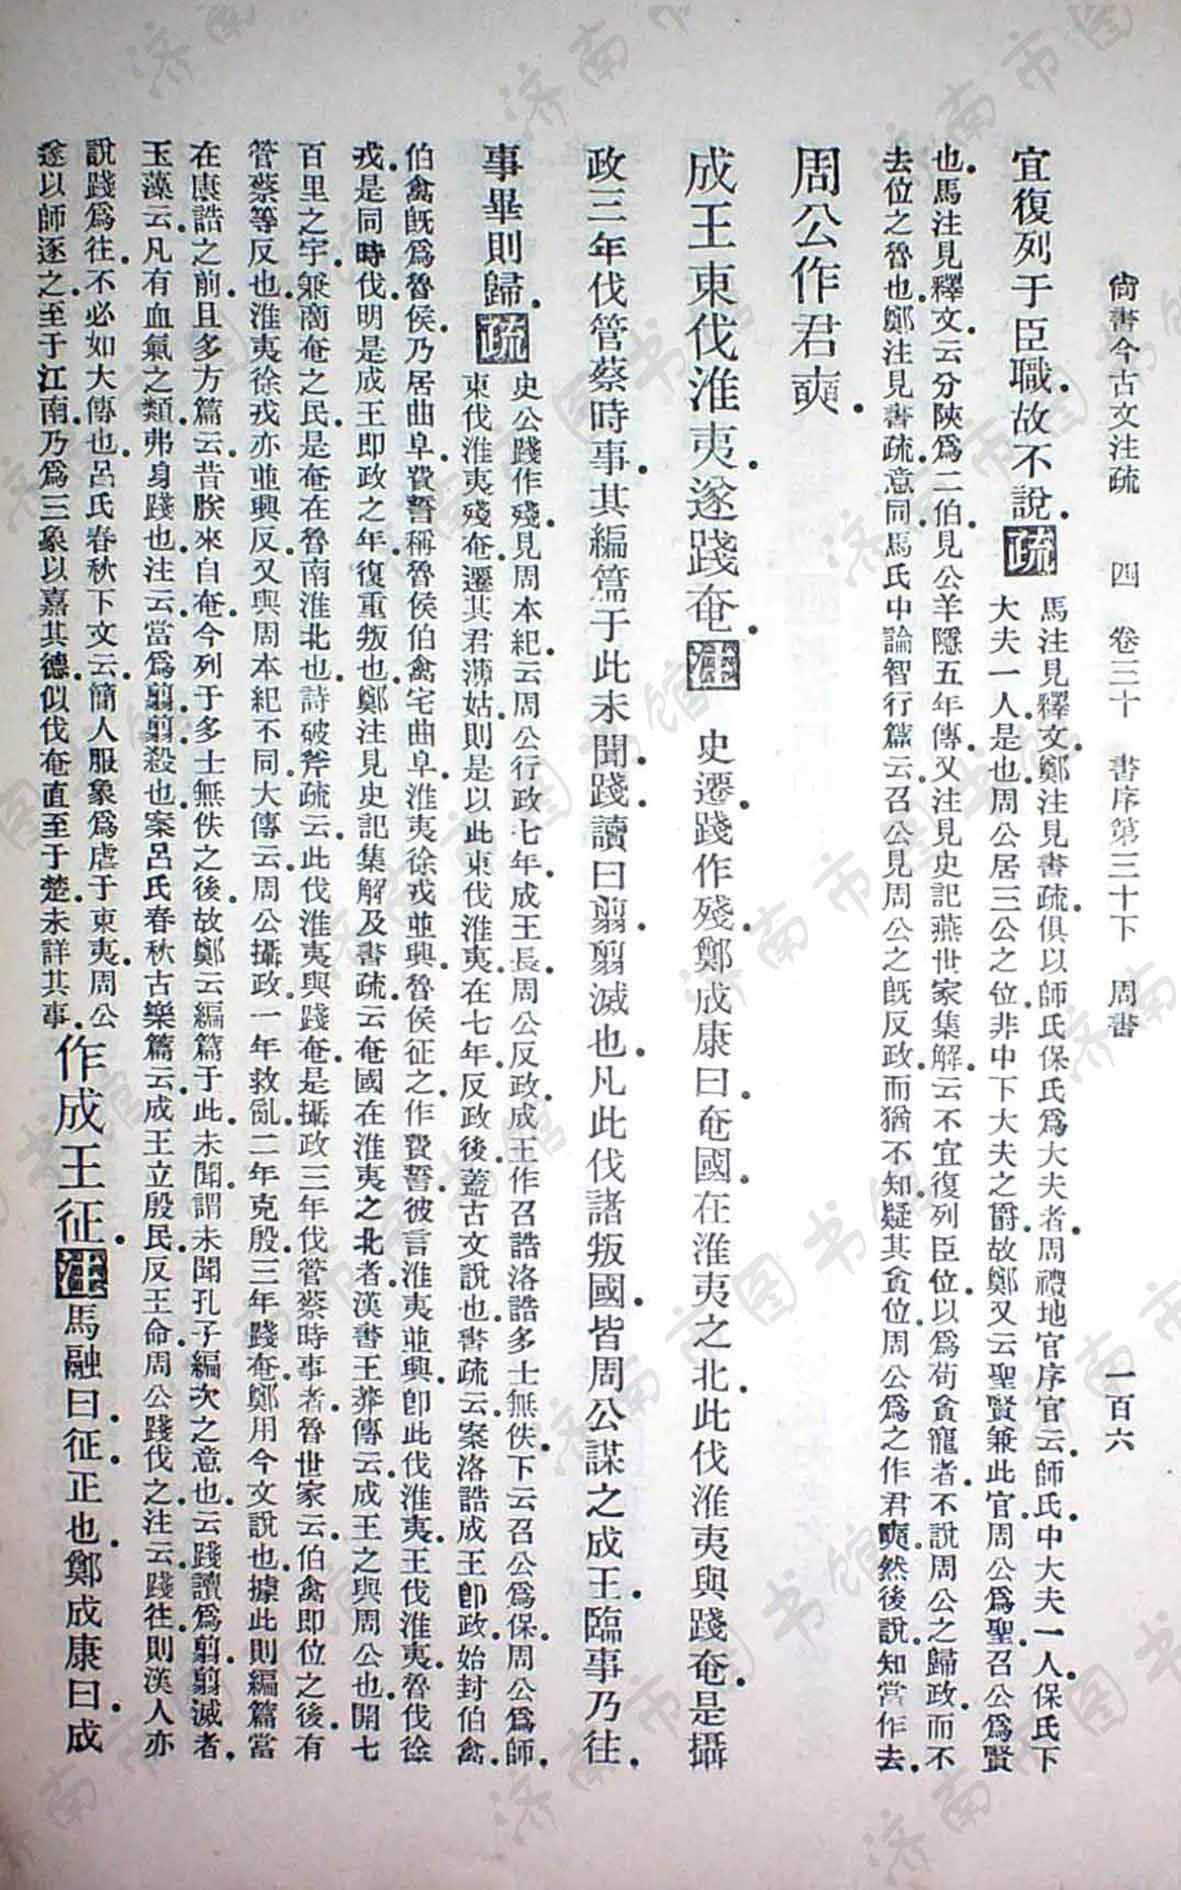 尙書今古文注疏　四　卷三十　書序第三十下　周書　一百六
宜復列于臣職．故不說．疏
馬注見釋文．鄭注見書疏．俱以師氏保氏爲大夫者．周禮地官序官云．師氏．中大夫一人．保氏下
大夫一人．是也．周公居三公之位．非中下大夫之爵．故鄭又云聖賢兼此官．周公爲聖．召公爲賢
也．馬注見釋文．云分陝爲二伯．見公羊隱五年傳．又注見史記燕世家集解．云不宜復列臣位．以爲苟貪寵者．不說周公之歸政．而不
去位之魯也．鄭注見書疏．意同．馬氏中論智行篇云．召公見周公之旣反政．而猶不知．疑其貪位．周公爲之作君奭．然後說．知當作去．
周公作君奭．
成王東伐淮夷．遂踐奄．注　史遷．踐作殘．鄭成康曰．奄國．在淮夷之北．此伐淮夷與踐奄．是攝
政三年伐管蔡時事．其編篇于此未聞．踐．讀曰翦．翦．滅也．凡此伐諸叛國．皆周公謀之．成王．臨事乃往．
事畢則歸．疏
史公踐作殘．見周本紀．云周公行政七年．成王長．周公反政．成王作召誥洛誥．多士無佚．下云召公爲保．周公爲師．
東伐淮夷殘奄．遷其君薄姑．則是以此東伐淮夷．在七年．反政後．蓋古文說也．書疏云．案洛誥成王卽政．始封伯禽．
伯禽旣爲魯侯．乃居曲阜．費誓稱魯侯伯禽宅曲阜．淮夷徐戎並興．魯侯征之．作費誓．彼言淮夷並興．卽此伐淮夷．王伐淮夷．魯伐徐
戎．是同時伐．明是成王即政之年．復重叛也．鄭注見史記集解及書疏．云奄國在淮夷之北者．漢書王莽傳云．成王之與周公也．開七
百里之宇．兼商奄之民．是奄在魯南淮北也．詩破斧疏云．此伐淮夷與踐奄．是攝政三年伐管蔡時事者．魯世家云．伯禽即位之後．有
管蔡等反也．淮夷徐戎亦並興反．又與周本紀不同．大傳云．周公攝政．一年救亂．二年克殷．三年踐奄．鄭用今文說也．據此則編篇當
在康誥之前．且多方篇云．昔朕來自奄．今列于多士無佚之後．故鄭云編篇于此．未聞．謂未聞孔子編次之意也．云踐讀爲翦．翦滅者．
玉藻云．凡有血氣之類．弗身踐也．注云．當爲翦．翦．殺也．案呂氏春秋古樂篇云．成王立．殷民反．王命周公踐伐之．注云．踐．往．則漢人亦
說踐爲往．不必如大傳也．呂氏春秋下文云．商人服象爲虐于東夷．周公
遂以師逐之．至于江南．乃爲三象．以嘉其德．似伐奄直至于楚．未詳其事．
作成王征．注馬融曰．征．正也．鄭成康曰．成